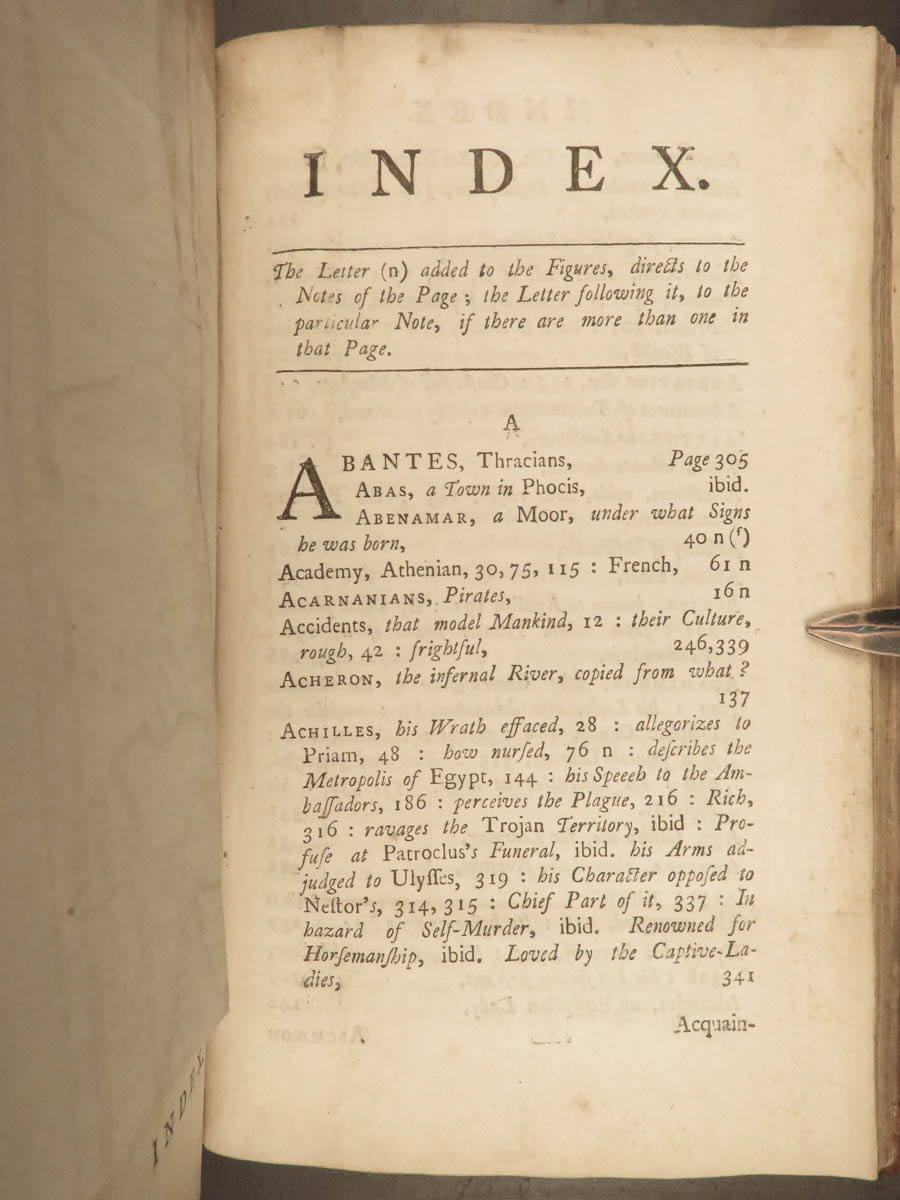 INDEX.
The Letter (n) added to the Figures, directs to the
Notes of the Page; the Letter following it, to the
particular Note, if there are more than one in
that Page.
A
ABANTES, Thracians, Page 305
ABAS, a Town in Phocis, ibid.
ABENAMAR, a Moor, under what Signs
he was born, 40 n (f)
Academy, Athenian, 30, 75, 115 : French, 61 n
ACARNANIANS, Pirates, 16 n
Accidents, that model Mankind, 12 : their Culture,
rough, 42 : frightful, 246,339
ACHERON, the infernal River, copied from what?
137
ACHILLES, his Wrath effaced, 28 : allegorizes to
Priam, 48 : how nurſed, 76 n : deſcribes the
Metropolis of Egypt, 144 : his Speeeh to the Am-
baſſadors, 186 : perceives the Plague, 216 : Rich,
316 : ravages the Trojan Territory, ibid : Pro-
fuſe at Patroclus's Funeral, ibid. his Arms ad-
judged to Ulyſſes, 319 : his Character oppoſed to
Neſtor's, 314, 315 : Chief Part of it, 337 : In
hazard of Self-Murder, ibid. Renowned for
Horſemanſhip, ibid. Loved by the Captive-La-
dies, 341
Acquain-
INDEX